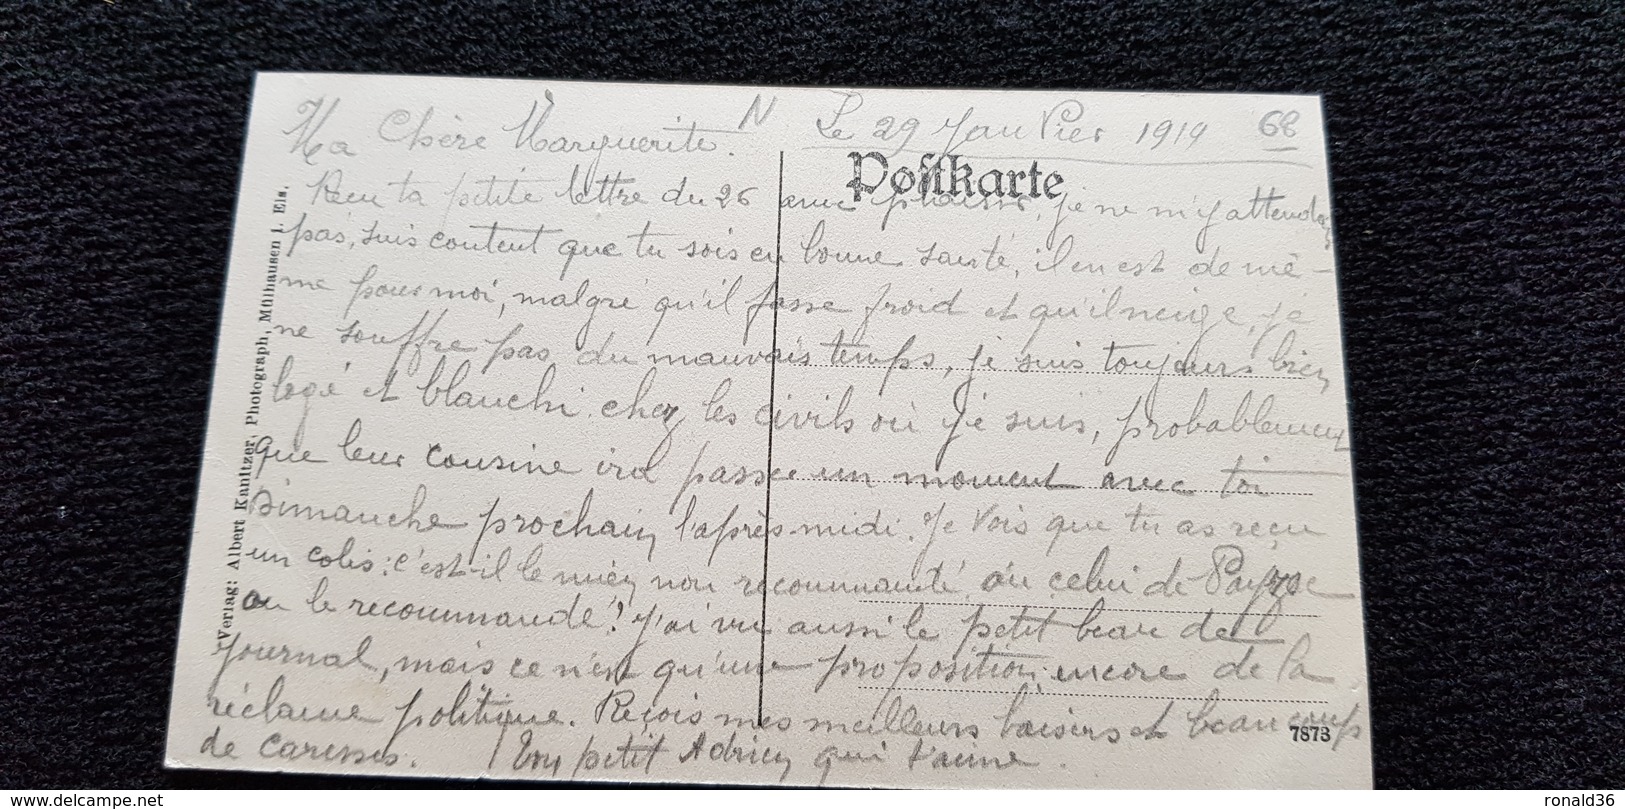 Ma Chère Marguerite. N Le 29 Janvier 1919 68
Postkarte
Recu ta petite lettre du 26 avec plaisir, je ne m'y attendais
pas, suis content que tu sois en bonne santé, il en est de mê-
me pour moi, malgré qu'il fasse froid et qu'il neige, je
ne souffre pas du mauvais temps, je suis toujours bien
logé et blanchi chez les civils où je suis, probablement
que leur cousine ira passer un moment avec toi
Dimanche prochain l'après-midi. Je vois que tu as reçu
un colis: c'est-il le mien non recommandé, ou celui de
ou le recommandé? J'ai vu aussi le petit beau de
journal, mais ce n'est qu'une proposition encore de la
réclame politique. Reçois mes meilleurs baisers et beaucoups
de caresses. Ton petit Adrien qui t'aime.
Verlag: Albert Kanitzer, Photograph, Mülhausen i. Els.
7873
delcampe.net
ronald36